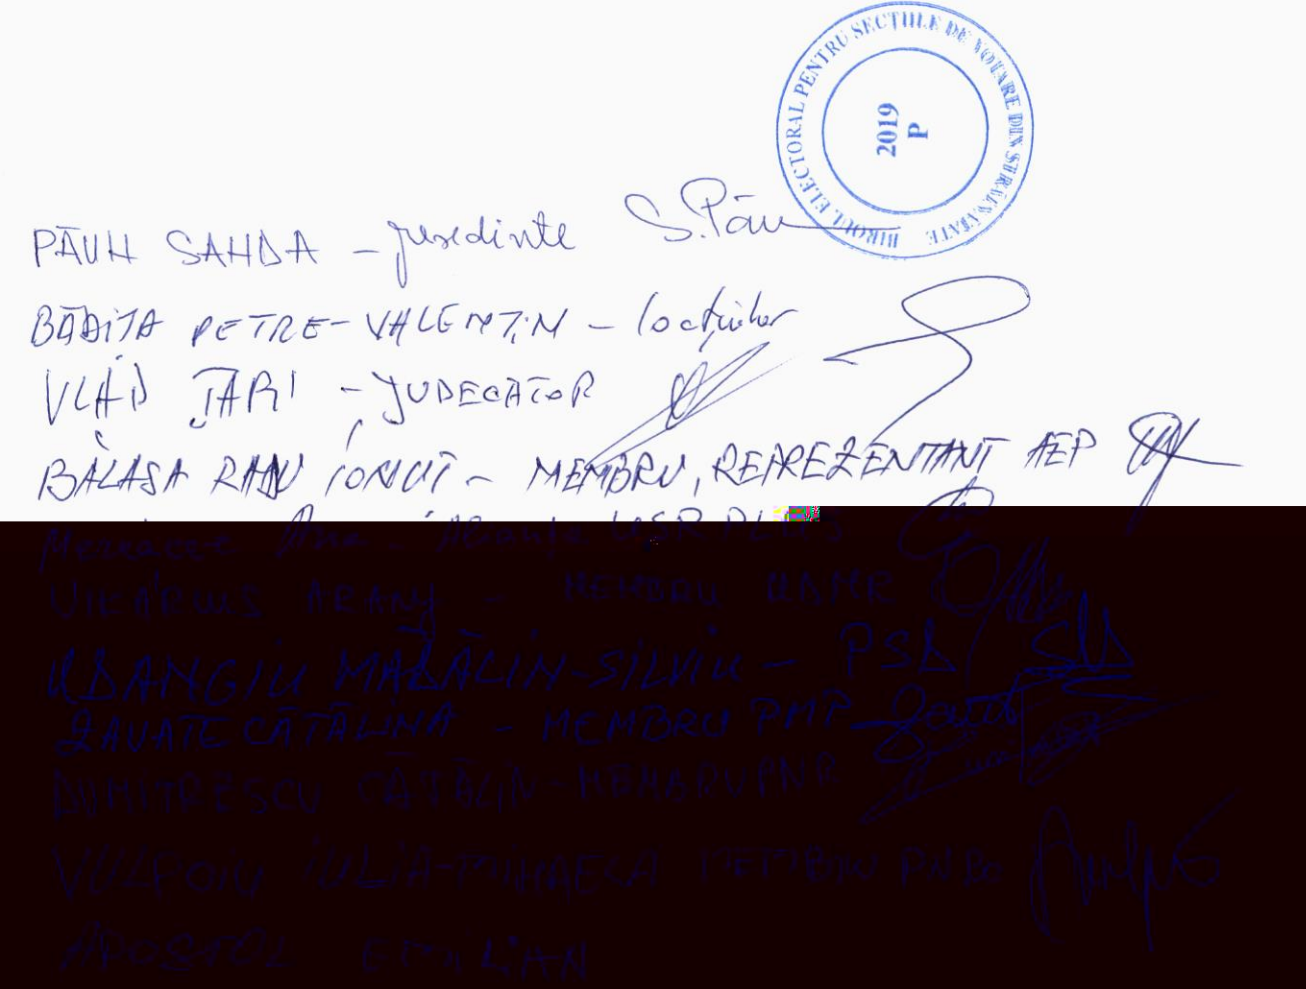 BIROUL ELECTORAL PENTRU SECȚIILE DE VOTARE DIN STRĂINĂTATE
2019
P
PĂUN SANDA - președinte S. Păun
BĂDIȚA PETRE-VALENTIN - locțiitor
VLAD ȚARI - JUDECĂTOR
BĂLAȘA RADU IONUȚ - MEMBRU, REPREZENTANT AEP
Ana - Alianța USR PLUS
VIKÁRIUS ARANY - MEMBRU UDMR
UDANGIU MĂDĂLIN-SILVIU - PSD
ZAVATE CĂTĂLINA - MEMBRU PMP
DUMITRESCU CĂTĂLIN - MEMBRU PNR
VULPOIU IULIA-MIHAELA MEMBRU
APOSTOL EMILIAN